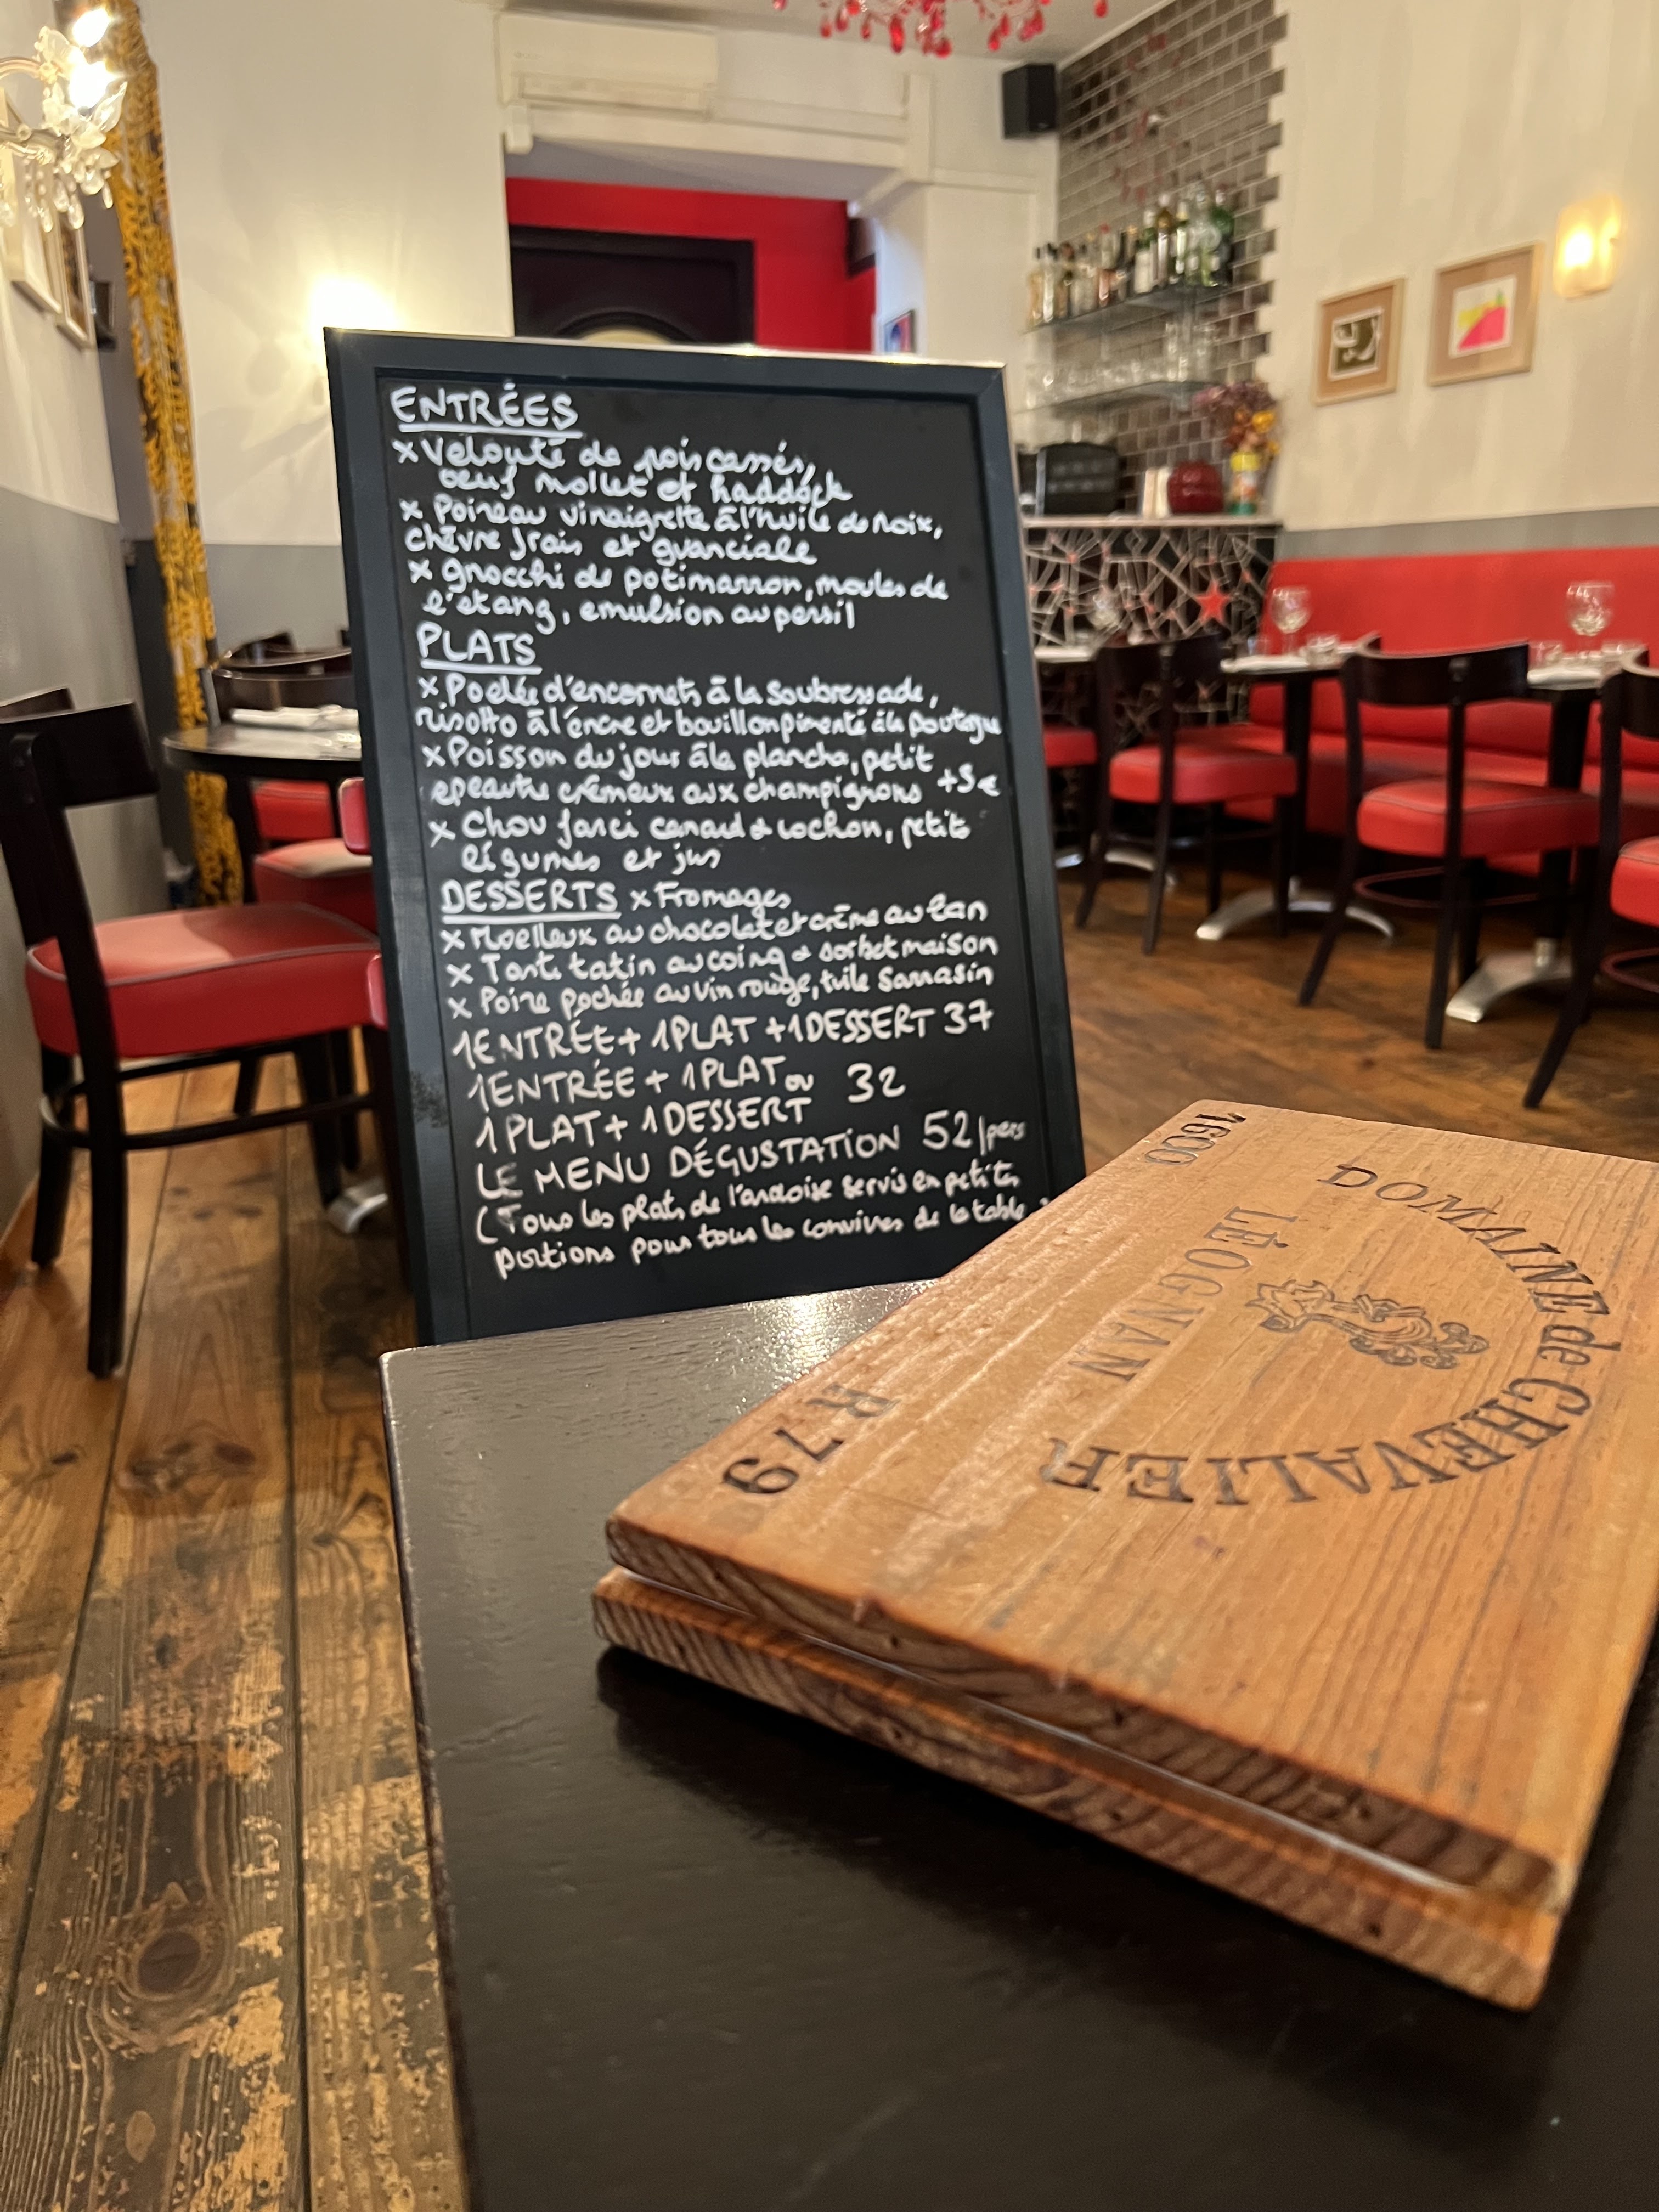 ENTRÉES
x Velouté de pois cassés,
œuf mollet et haddock
x Poireau vinaigrette à l'huile de noix,
chèvre frais et guanciale
x gnocchi de potimarron, moules de
l'étang, emulsion au persil
PLATS
x Poêlée d'encornets à la Soubressade,
risotto à l'encre et bouillon pimenté à la poutargue
x Poisson du jour à la plancha, petit
epeautre crémeux aux champignons +5€
x Chou farci canard & cochon, petits
légumes et jus
DESSERTS x Fromages
x Moelleux au chocolat et crème au lait
x Tarte tatin au coing & sorbet maison
x Poire pochée au vin rouge, tuile Sarrasin
1ENTRÉE+ 1PLAT +1DESSERT 37
1ENTRÉE + 1PLAT ou 32
1PLAT+ 1DESSERT
LE MENU DÉGUSTATION 52/pers
(Tous les plats de l'ardoise servis en petites
portions pour tous les convives de la table
1600
DOMAINE de CHEVALIER
LÉOGNAN
R79